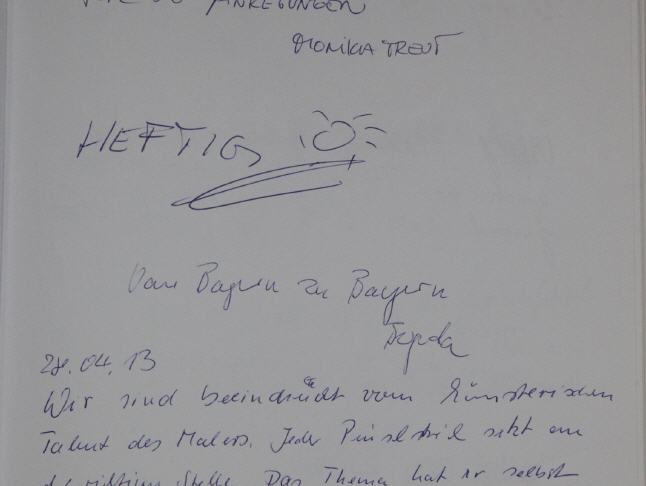 ANREGUNGEN
MONIKA TREUT
HEFTIG
Von Bayern zu Bayern
28.04.13
Wir sind beeindruckt vom künstlerischen
Talent des Malers. Jeder Pinselstrich sitzt an
richtigen Stelle. Das Thema hat er selbst